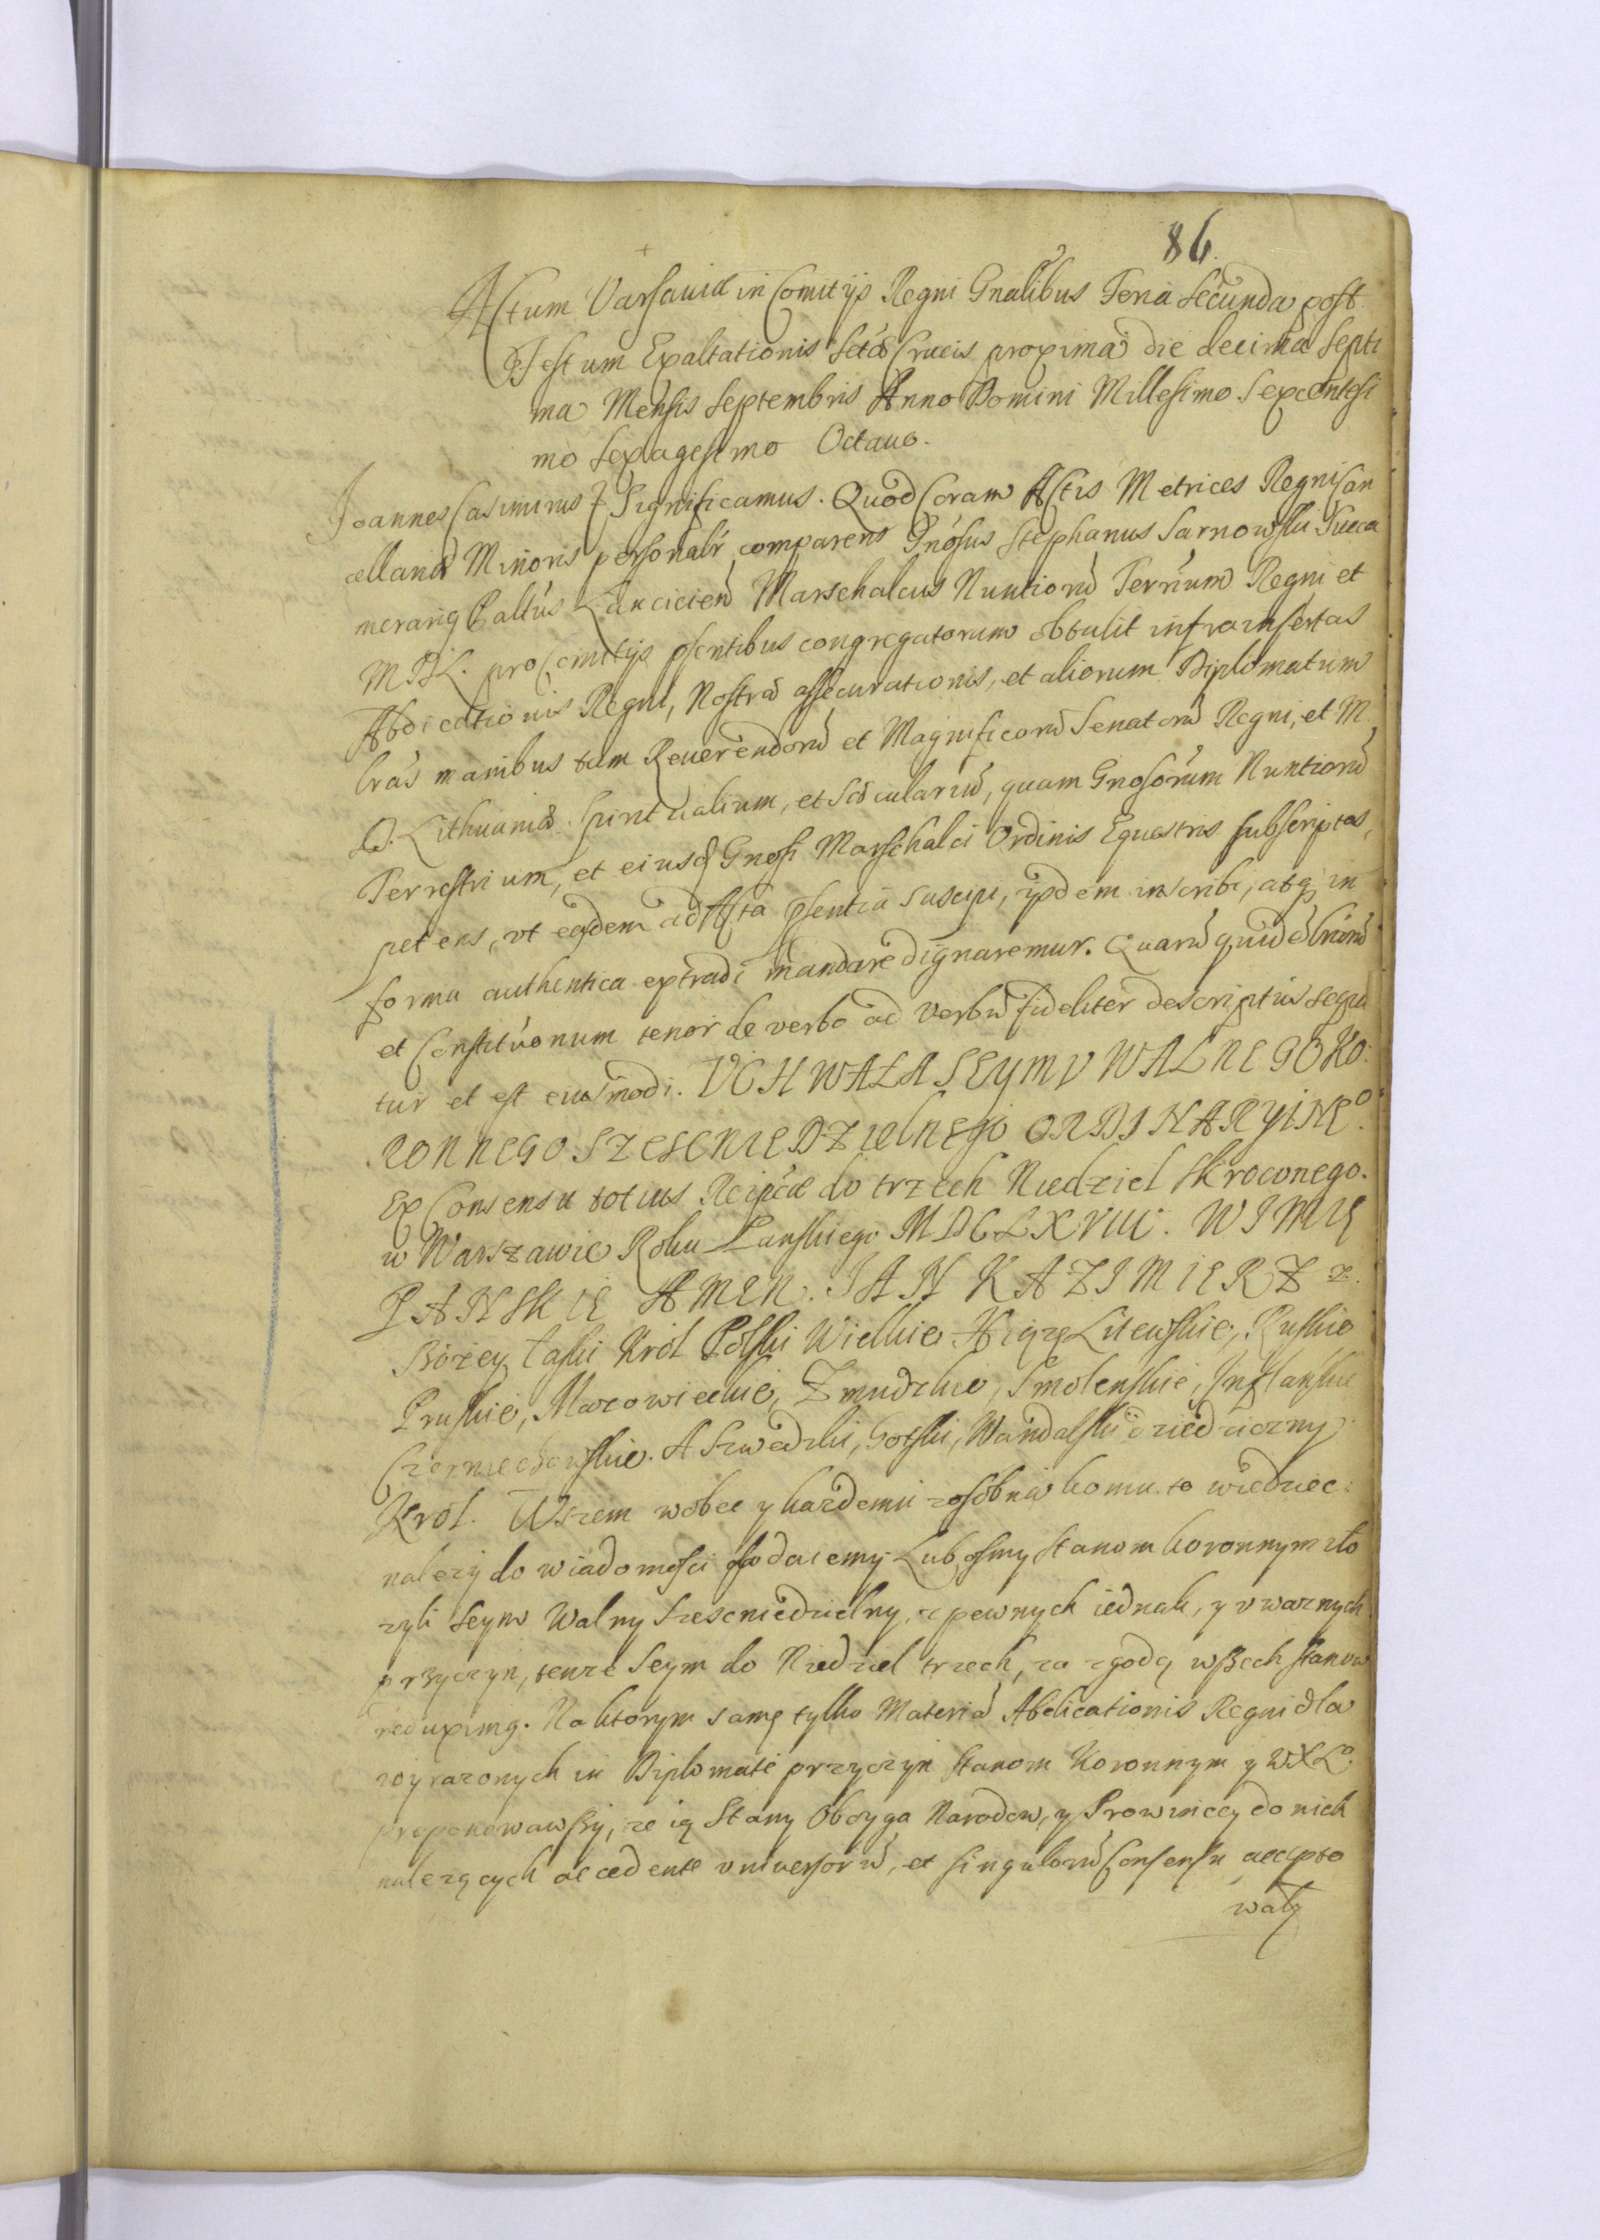 86.
Actum Varsauiæ in Comitijs Regni Gnalibus Feria Secunda post
Festum Exaltationis Sctæ Crucis proxima die decima Septi
ma Mensis Septembris Anno Domini Millesimo Sexcentesi
mo Sexagesimo Octauo.
Joannes Casimirus & Significamus. Quod Coram Actis Metrices Regni Can
cellariæ Minoris personalr comparens Gnosus Stephanus Sarnowski Succa
merarig Pallus Lanciciens Marschalcus Nuntioru Terrium Regni et
M D L. pro Comitijs psentibus congregatorum obtulit infrainsertas
Abdicationis Regni, Nostræ assecurationis, et aliorum Diplomatum
lras manibus tam Reuerendoru et Magnificoru Senatoru Regni, et M
D. Lithuaniæ Spiritualium, et Sæculariu, quam Gnosorum Nuntioru
Terrestrium, et eiusd Gnosi Marschalci Ordinis Equestris subscriptas,
petens, vt easdem ad Acta psentia suscipi, ijsdem inscribi, atq in
forma authentica extradi mandare dignaremur. Quaru quide lraru
et Constituonum tenor de verbo ad verbu fideliter descriptus sequi
tur et est eiusmodi. VCHWAŁA SEYMV WALNEGO KO
RONNEGO SZESCNIEDZIelnego ORDINARYINeo.
Ex Consensu totius Reipcæ do trzech Niedziel skroconego.
w Warszawie Roku Panskiego MDCLXVIII. W IMIE
PANSKIE AMEN. IAN KAZIMIERZ z
Bozey łaski Krol Polski Wielkie Xiąze Litewskie, Ruskie
Pruskie, Mazowieckie, Zmudzkie, Smolenskie, Inflanskie
Czerniechowskie. A Szwedzki, Gotski, Wandalski dziedziczny
Krol. Wszem wobec y kazdemu zosobna komu to wiedziec
nalezy do wiadomosci podaiemy. Lubosmy stanom koronnym zło
zyli Seym Walny Szescniedzielny, z pewnych iednak, y vwaznych
przyczyn, tenze Seym do Niedziel trzech, za zgodą wszech stanow
reduximg. Na ktorym samę tylko Materią Abdicationis Regni dla
wyrazonych in Diplomate przyczyn stanom Koronnym y WXLo.
proponowawszy, ze ią Stany Oboyga Narodow, y Prowincey do nich
nalezących accedente vniuersoru, et singuloru Consensu accepto
wały